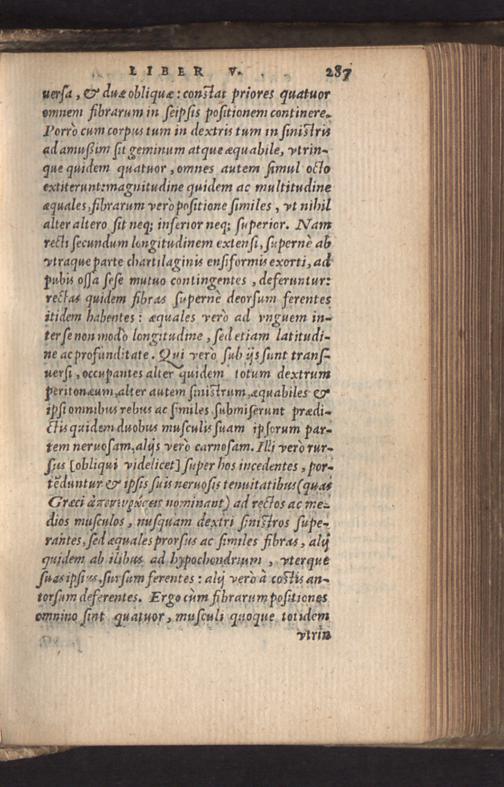 LIBER V. 287
uersa, & duæ obliquæ: constat priores quatuor
omnem fibrarum in seipsis positionem continere.
Porrò cum corpus tum in dextris tum in sinistris
ad amußim sit geminum atque æquabile, vtrin-
que quidem quatuor, omnes autem simul octo
extiterunt: magnitudine quidem ac multitudine
æquales, fibrarum verò positione similes, vt nihil
alter altero sit neq; inferior neq; superior. Nam
recti secundum longitudinem extensi, supernè ab
vtraque parte chartilaginis ensiformis exorti, ad
pubis ossa sese mutuo contingentes, deferuntur:
rectas quidem fibras supernè deorsum ferentes
itidem habentes: æquales verò ad vnguem in-
ter se non modò longitudine, sed etiam latitudi-
ne ac profunditate. Qui verò sub ijs sunt trans-
uersi, occupantes alter quidem totum dextrum
peritonæum, alter autem sinistrum, æquabiles &
ipsi omnibus rebus ac similes submiserunt prædi-
ctis quidem duobus musculis suam ipsorum par-
tem neruosam, alijs verò carnosam. Illi verò rur-
sus [obliqui videlicet] super hos incedentes, por-
tẽduntur & ipsis suis neruosis tenuitatibus (quas
Græci nominant) ad rectos ac me-
dios musculos, nusquam dextri sinistros supe-
rantes, sed æquales prorsus ac similes fibras, alij
quidem ab ilibus ad hypochondrium, vterque
suas ipsius, sursum ferentes: alij verò à costis an-
torsum deferentes. Ergo cùm fibrarum positiones
omnino sint quatuor, musculi quoque totidem
vtrin